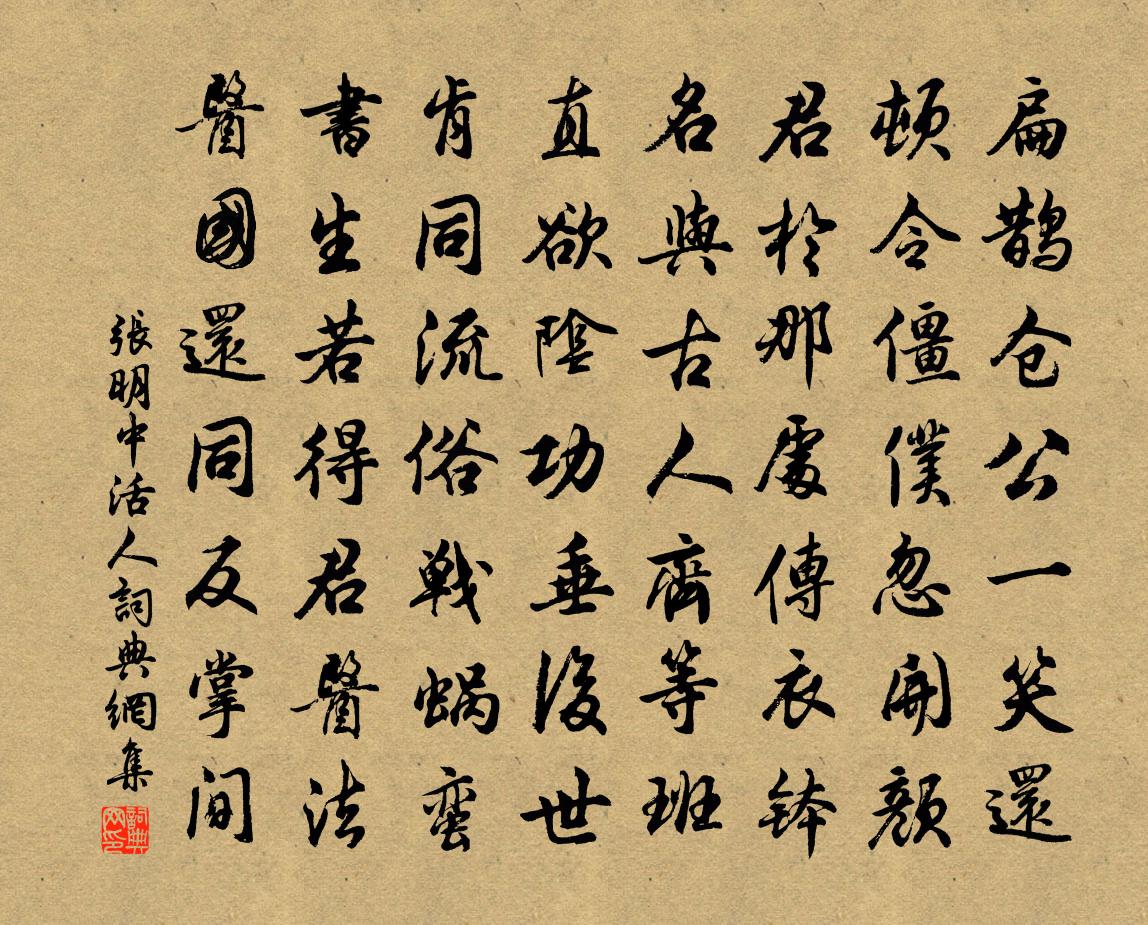 扁鹊仓公一笑還
頓令僵僕忽開顏
君於那處傳衣缽
名與古人齊等班
直欲陰功垂後世
肯同流俗戰蝸蠻
書生若得君醫法
醫國還同反掌間
張明中活人詞典網集
詞典網印